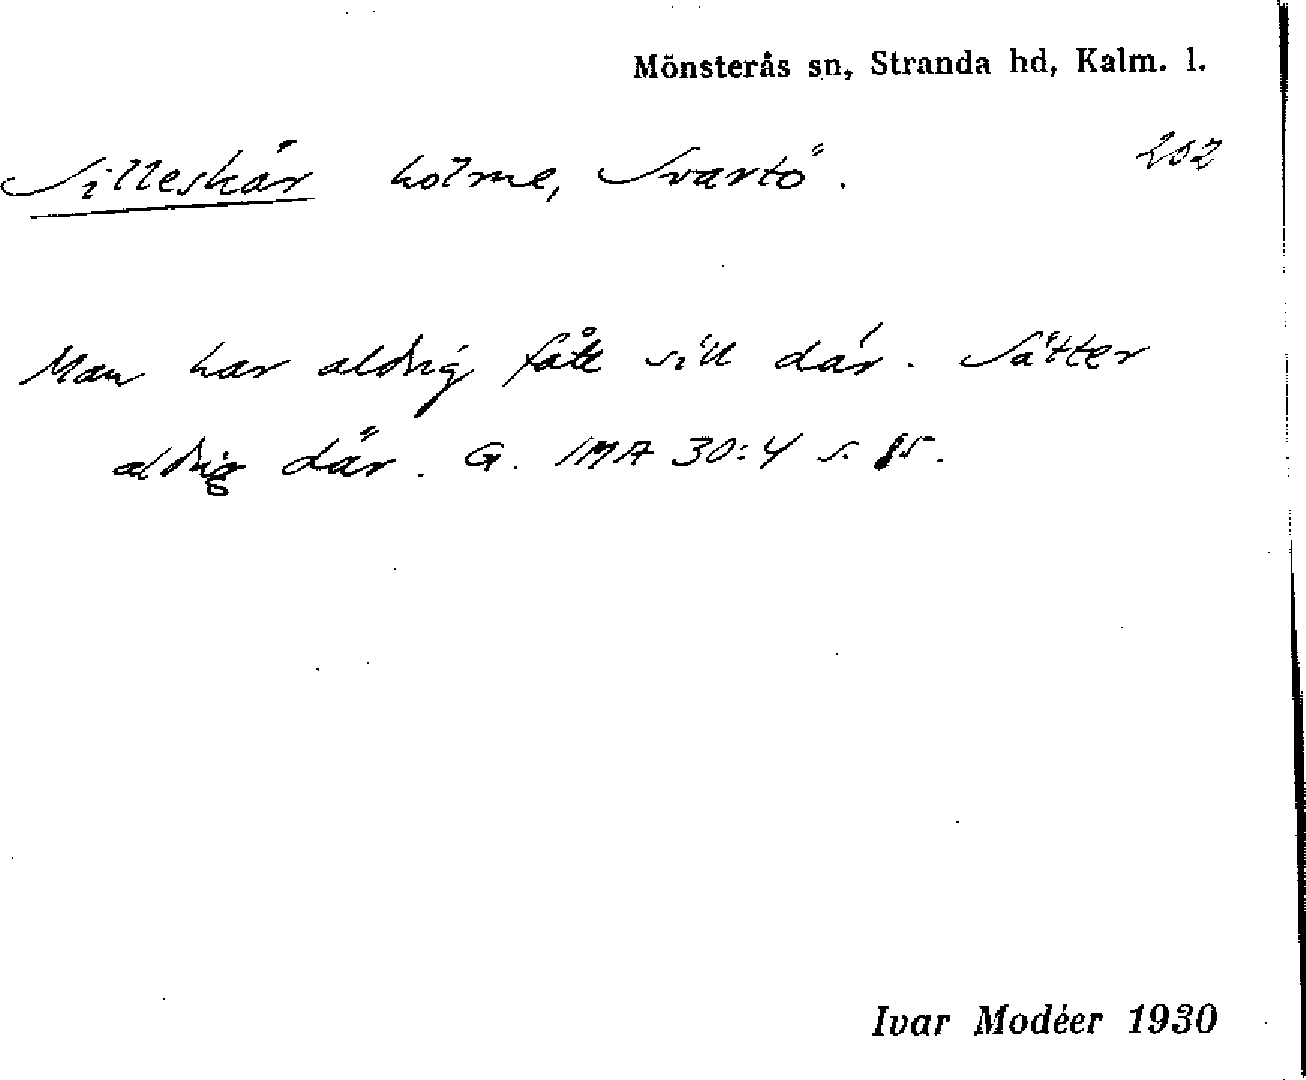 Mönsterås sn, Stranda hd, Kalm. l.
Silleskär holme, Svartö. 202
Man har aldrig fått sill där. Sätter
aldrig där. G. IMA 30:4 s. 85.
Ivar Modéer 1930